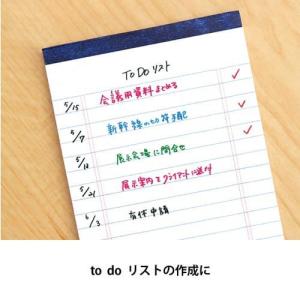 To Do リスト
5/15 会議用資料まとめる ✓
5/7 新幹線の切符手配 ✓
5/18 展示会場に問合せ ✓
5/21 展示案内をクライアントに送付
6/3 有休申請
to do リストの作成に